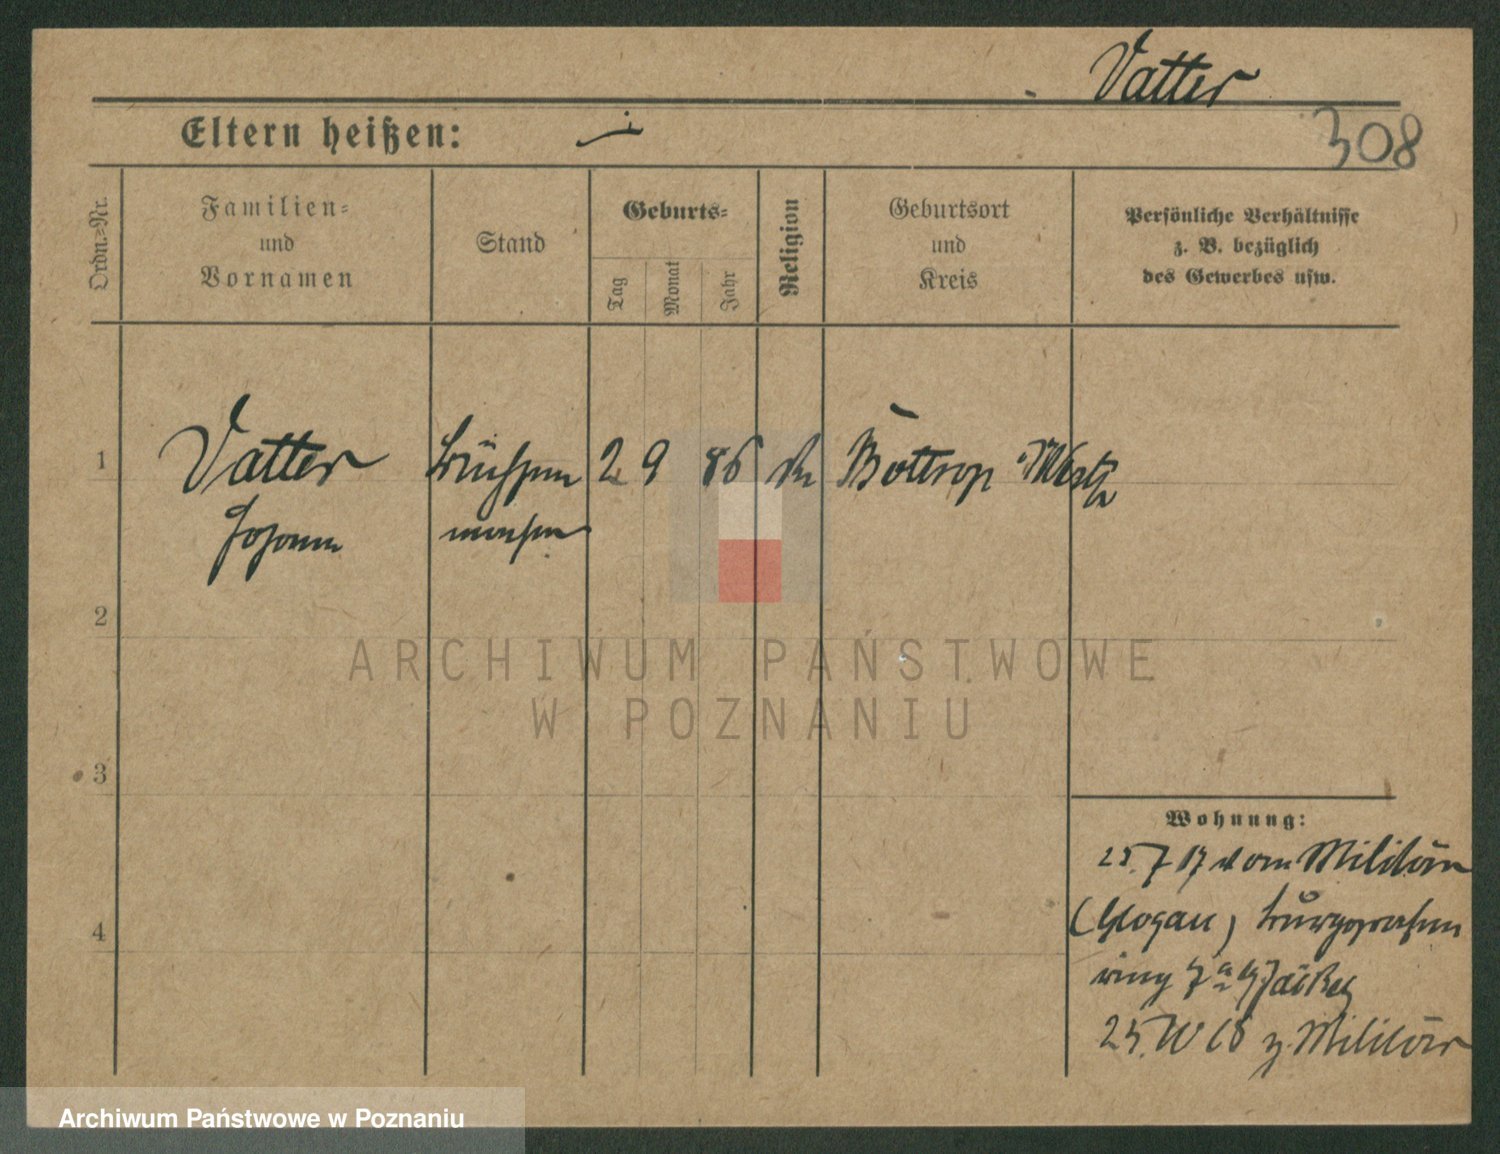 Vatter
Eltern heißen:
308
Ordn.-Nr.
Familien-
und
Vornamen
Stand
Geburts-
Tag
Monat
Jahr
Religion
Geburtsort
und
Kreis
Persönliche Verhältnisse
z. B. bezüglich
des Gewerbes usw.
1
Vatter
Johann
Büchsen
macher
2 9 86
Bottrop Westf
2
ARCHIWUM PAŃSTWOWE
W POZNANIU
3
Wohnung:
25.7 17 vom Militär
(Glogau) Burggrafen
ring 7
4
25. IV 18 z. Militär
Archiwum Państwowe w Poznaniu